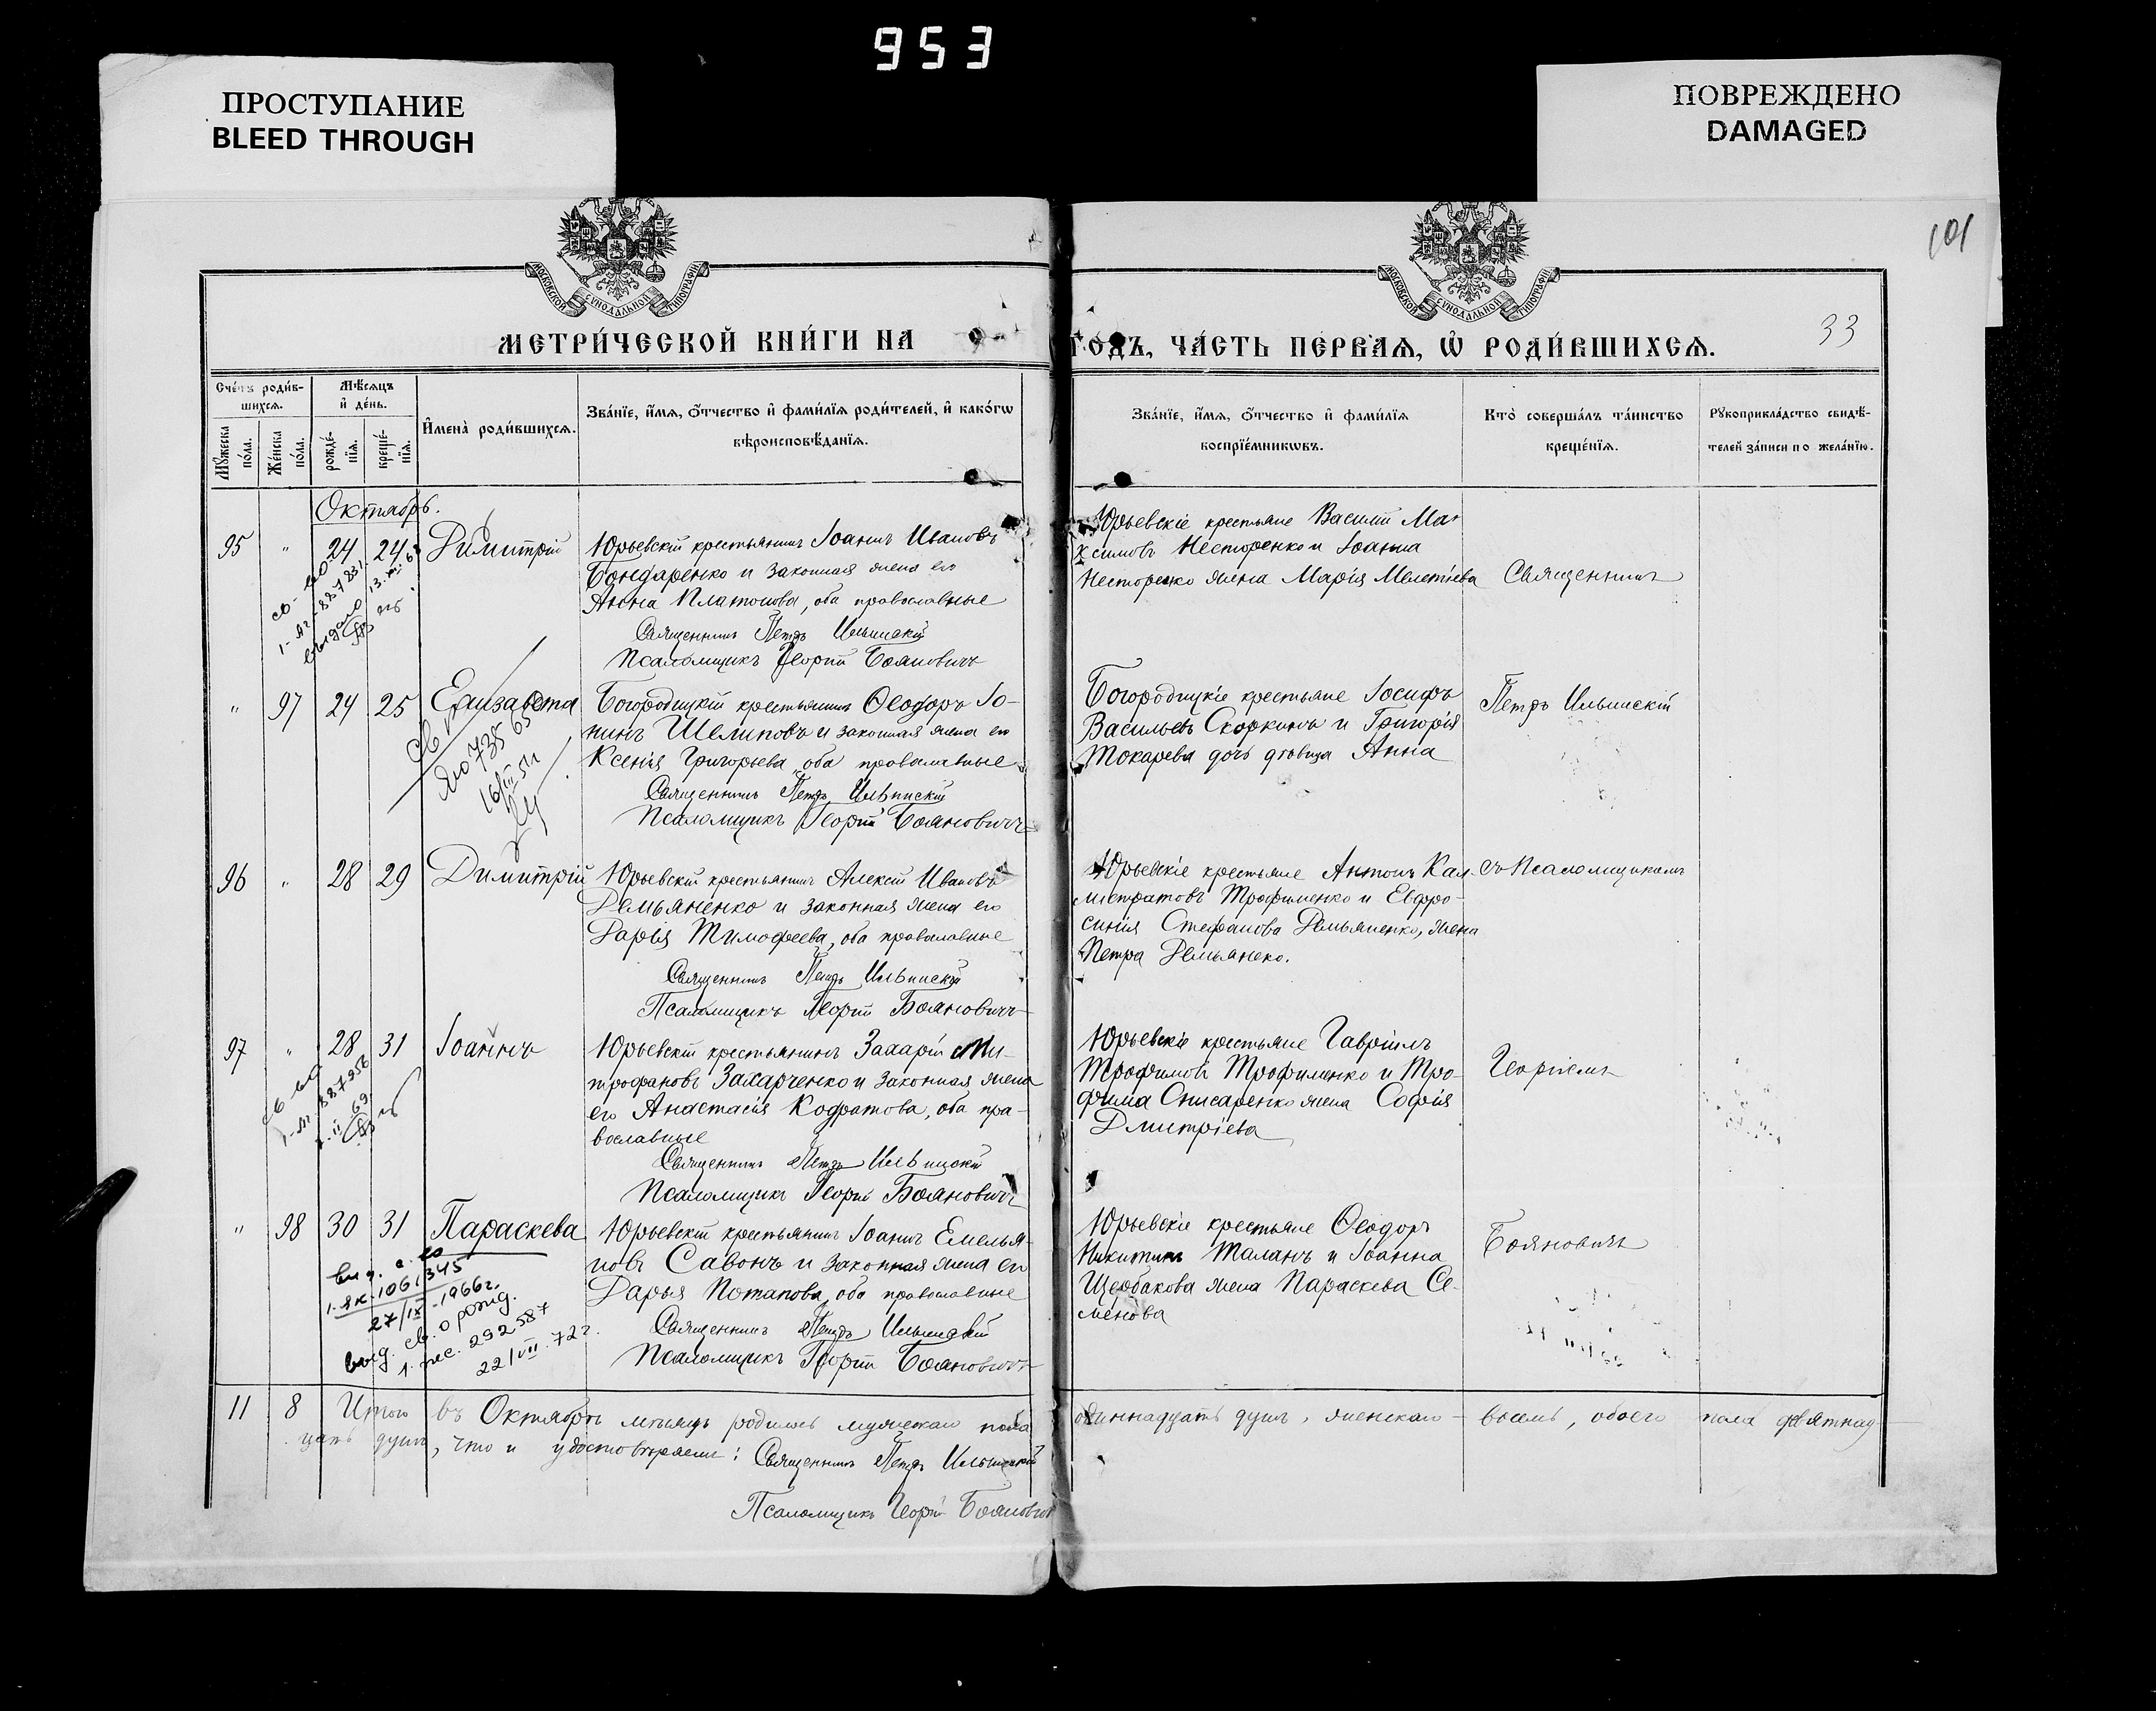 953
ПРОСТУПАНИЕ
BLEED THROUGH
ПОВРЕЖДЕНО
DAMAGED
101
МОСКОВСКОЙ СѴНОДАЛЬНОЙ ТИПОГРАФІИ
МОСКОВСКОЙ СѴНОДАЛЬНОЙ ТИПОГРАФІИ
МЕТРИ́ЧЕСКОЙ КНИ́ГИ НА
ГОДЪ, ЧА́СТЬ ПЕ́РВАЯ, Ѡ РОДИ́ВШИХСЯ.
33
Сче́тъ роди́в-
шихся.
Мꙋжеска по́ла.
Же́нска по́ла.
Мѣ́сяцъ
и҆ де́нь.
рожде́-
нїя.
креще́-
нїя.
И҆мена̀ роди́вшихся.
Зва́нїе, и҆́мя, ѻ҆́тчество и҆ фами́лїя роди́телей, и҆ како́гѡ
вѣроисповѣ́данїя.
Зва́нїе, и҆́мя, ѻ҆́тчество и҆ фами́лїя
воспрїе́мникѡвъ.
Кто̀ соверша́лъ та́инство
креще́нїя.
Рꙋкоприкла́дство свидѣ́-
телей за́писи по жела́нїю.
Октябрь.
95 " 24 24 Димитрій
Юрьевскій крестьянинъ Іоаннъ Ивановъ
Бондаренко и законная жена его
Анна Платонова, оба православные
Священникъ Петръ Ильинскій
Псаломщикъ Георгій Бояновичъ
1-яг-887831
выдано
Юрьевскіе крестьяне Василій Ма-
ксимовъ Несторенко и Іоанна
Несторенко жена Марія Мелетіева
Священникъ
" 97 24 25 Елизавета
Богородицкій крестьянинъ Ѳеодоръ Іо-
нинъ Шелиповъ и законная жена его
Ксенія Григорьева, оба православные
Священникъ Петръ Ильинскій
Псаломщикъ Георгій Бояновичъ
Богородицкіе крестьяне Іосифъ
Васильевъ Скоркинъ и Григорія
Токарева дочь дѣвица Анна
Петръ Ильинскій
96 " 28 29 Димитрій
Юрьевскій крестьянинъ Алексій Ивановъ
Демьяненко и законная жена его
Дарія Тимофеева, оба православные
Священникъ Петръ Ильинскій
Псаломщикъ Георгій Бояновичъ
Юрьевскіе крестьяне Антонъ Кал-
листратовъ Трофименко и Евфро-
синія Стефанова Демьяненко, жена
Петра Демьянеко.
съ Псаломщикомъ
97 " 28 31 Іоаннъ
Юрьевскій крестьянинъ Захарій Ми-
трофановъ Захарченко и законная жена
его Анастасія Кодратова, оба пра-
вославные
Священникъ Петръ Ильинскій
Псаломщикъ Георгій Бояновичъ
Юрьевскіе крестьяне Гавріилъ
Трофимовъ Трофименко и Тро-
фима Снисаренко жена Софія
Дмитріева
Георгіемъ
" 98 30 31 Параскева
Юрьевскій крестьянинъ Іоаннъ Емелья-
новъ Савонъ и законная жена его
Дарья Потапова, оба православные
Священникъ Петръ Ильинскій
Псаломщикъ Георгій Бояновичъ
1-як-1061345
27/IX-1966г.
выд. св. о рожд.
292587
22/VII. 72г.
Юрьевскіе крестьяне Ѳеодоръ
Никитинъ Таланъ и Іоанна
Щербакова жена Параскева Се-
менова
Бояновичъ
11 8 Итого въ Октябрѣ мѣсяцѣ родилось мужескаго пола одиннадцать душъ, женскаго – восемь, обоего пола девятнад-
цать душъ, что и удостовѣряемъ: Священникъ Петръ Ильинскій
Псаломщикъ Георгій Бояновичъ